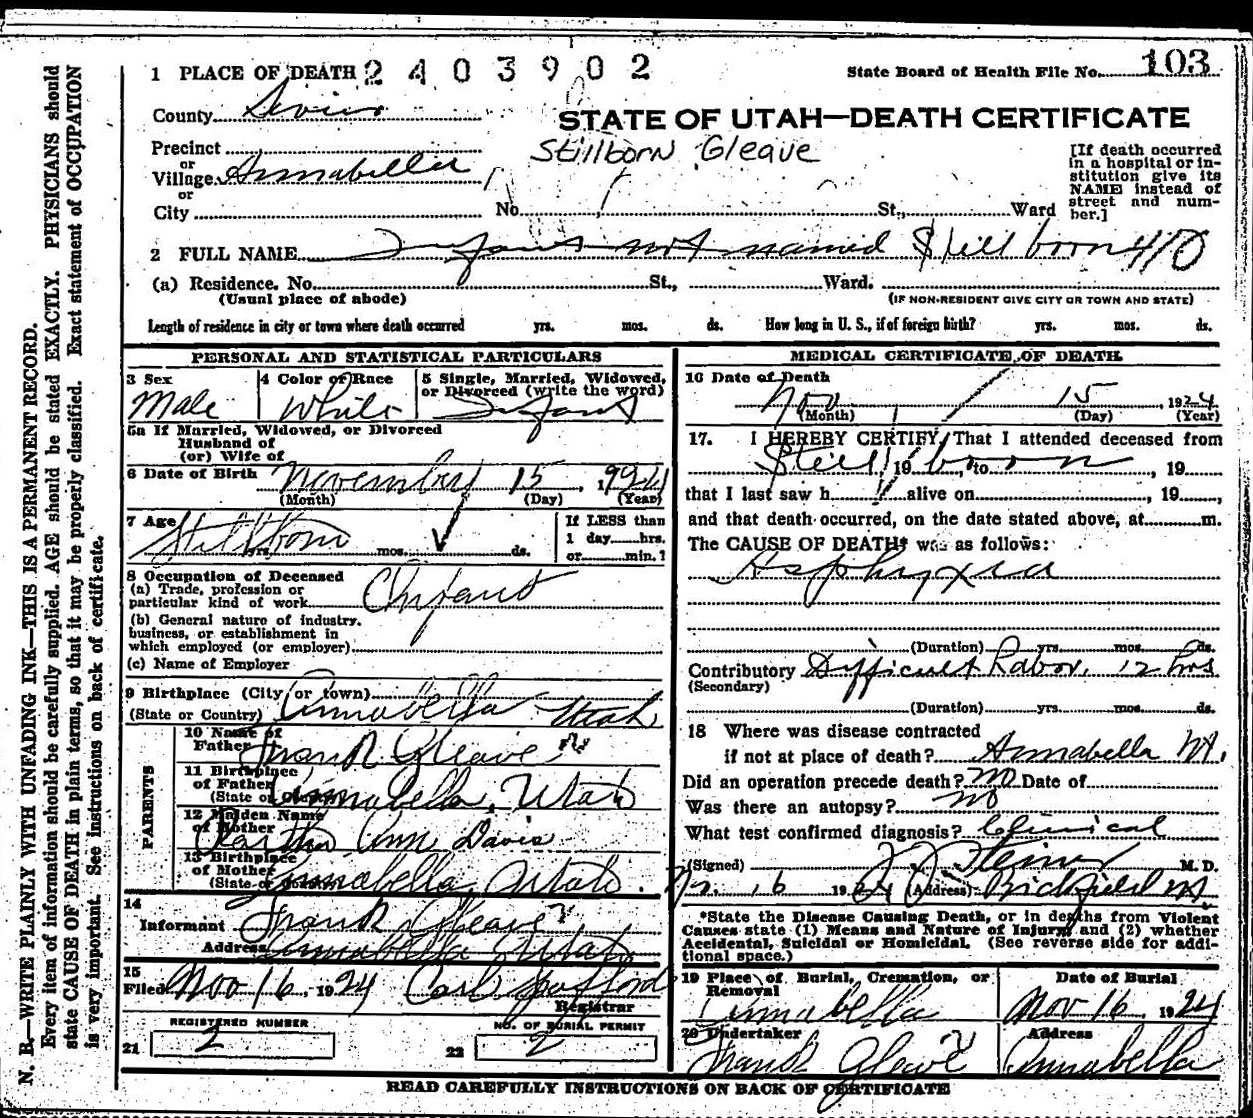 103
1 PLACE OF DEATH 2403902 State Board of Health File No.
County Sevier
STATE OF UTAH—DEATH CERTIFICATE
Precinct
Stillborn Gleave
or
Village Annabella
or
City No. St., Ward
[If death occurred
in a hospital or in-
stitution give its
NAME instead of
street and num-
ber.]
2 FULL NAME Infant not named Stillborn
(a) Residence. No. St., Ward.
(Usual place of abode) (IF NON-RESIDENT GIVE CITY OR TOWN AND STATE)
Length of residence in city or town where death occurred yrs. mos. ds. How long in U. S., if of foreign birth? yrs. mos. ds.
PERSONAL AND STATISTICAL PARTICULARS
3 Sex 4 Color or Race 5 Single, Married, Widowed,
or Divorced (write the word)
Male White Infant
5a If Married, Widowed, or Divorced
Husband of
(or) Wife of
6 Date of Birth November 15, 1924
(Month) (Day) (Year)
7 Age Stillborn If LESS than
yrs. mos. ds. 1 day hrs.
or min.?
8 Occupation of Deceased
(a) Trade, profession or
particular kind of work Infant
(b) General nature of industry,
business, or establishment in
which employed (or employer)
(c) Name of Employer
9 Birthplace (City or town)
(State or Country) Annabella Utah
PARENTS
10 Name of
Father Frank Gleave
11 Birthplace
of Father
(State or Country) Annabella, Utah
12 Maiden Name
of Mother Martha Ann Davis
13 Birthplace
of Mother
(State or Country) Annabella Utah.
14
Informant Frank Gleave
Address Annabella Utah
15
Filed Nov 16, 1924 Carl Spafford
Registrar
REGISTERED NUMBER NO. OF BURIAL PERMIT
21 2 22 2
MEDICAL CERTIFICATE OF DEATH
16 Date of Death
Nov 15 1924
(Month) (Day) (Year)
17. I HEREBY CERTIFY, That I attended deceased from
Still 19 born, to , 19
that I last saw h alive on , 19 ,
and that death occurred, on the date stated above, at m.
The CAUSE OF DEATH* was as follows:
Asphyxia
(Duration) yrs. mos. ds.
Contributory Difficult Labor, 12 hrs
(Secondary)
(Duration) yrs. mos. ds.
18 Where was disease contracted
if not at place of death? Annabella Ut.
Did an operation precede death? no Date of
Was there an autopsy? no
What test confirmed diagnosis? Clinical
(Signed) Steiner M. D.
16 1924 (Address) Richfield Ut.
*State the Disease Causing Death, or in deaths from Violent
Causes state (1) Means and Nature of Injury; and (2) whether
Accidental, Suicidal or Homicidal. (See reverse side for addi-
tional space.)
19 Place of Burial, Cremation, or Date of Burial
Removal
Annabella Nov 16 1924
20 Undertaker Address
Frank Gleave Annabella
READ CAREFULLY INSTRUCTIONS ON BACK OF CERTIFICATE
N. B.—WRITE PLAINLY WITH UNFADING INK—THIS IS A PERMANENT RECORD.
Every item of information should be carefully supplied. AGE should be stated EXACTLY. PHYSICIANS should
state CAUSE OF DEATH in plain terms, so that it may be properly classified. Exact statement of OCCUPATION
is very important. See instructions on back of certificate.